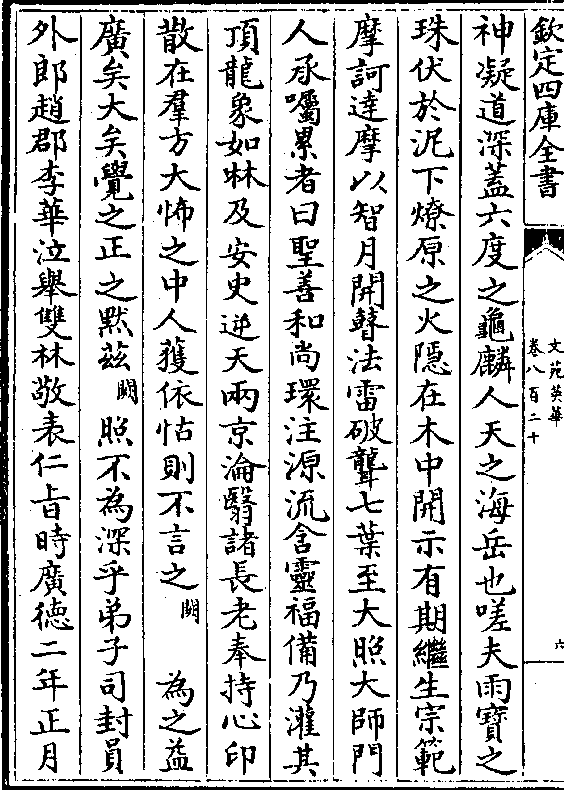 欽定四庫全書
文苑英華
卷八百二十
六
神凝道深蓋六度之龜麟人天之海岳也嗟夫雨寶之
珠伏於泥下燎原之火隱在木中開示有期繼生宗範
摩訶達摩以智月開瞽法雷破聾七葉至大照大師門
人承囑累者曰聖善和尚環注源流含靈福備乃灌其
頂龍象如林及安史逆天兩京淪翳諸長老奉持心印
散在羣方大怖之中人獲依怙則不言之闕為之益
廣矣大矣覺之正之黙兹闕照不為深乎弟子司封員
外郎趙郡李華泣舉雙林敬表仁旨時廣徳二年正月